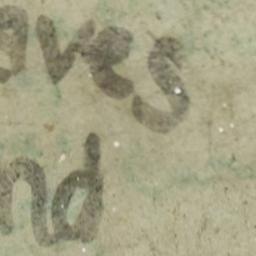 aves
nd